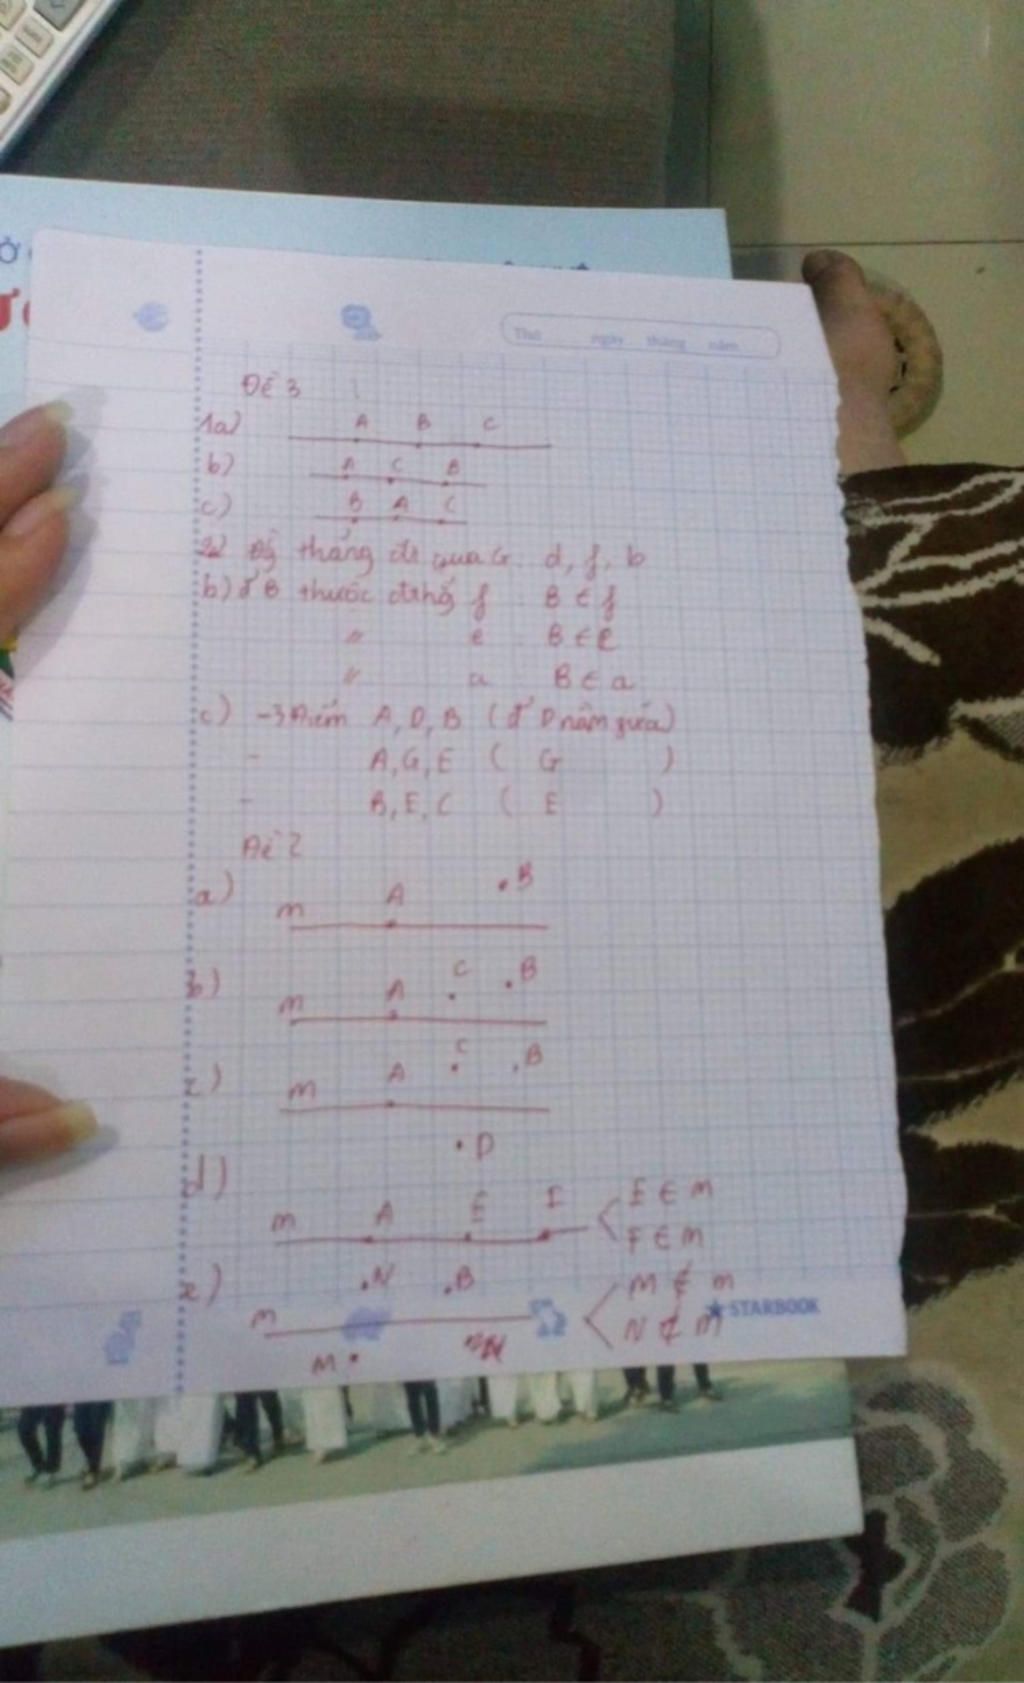 Thứ ngày tháng năm
Đề 3
1a) A B C
b) A C B
c) B A C
2a) Đg thẳng đi qua G d, f, b
b) đ' B thuộc đthg f B ∈ f
" e B ∈ e
" a B ∈ a
c) - 3 điểm A, D, B (đ' D nằm giữa)
- A, G, E ( G )
- B, E, C ( E )
Đề 2
a) m A B
b) m A C B
c) m A C B
D
d)
m A E I E ∈ m
F ∈ m
e) N B M ∉ m
m N ∉ m
M
STARBOOK